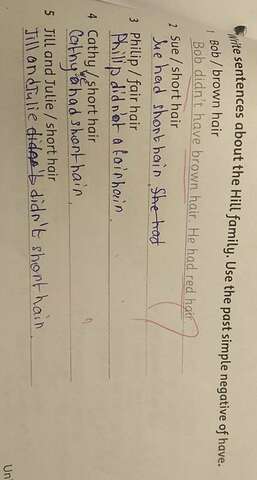 Write sentences about the Hill family. Use the past simple negative of have.
1 Bob / brown hair
Bob didn't have brown hair. He had red hair
2 Sue / short hair
Sue had short hair. She had
3 Philip / fair hair
Philip did not a fair hair.
4 Cathy / short hair
Cathy had short hair.
5 Jill and Julie / short hair
Jill and Julie didn't short hair.
Un